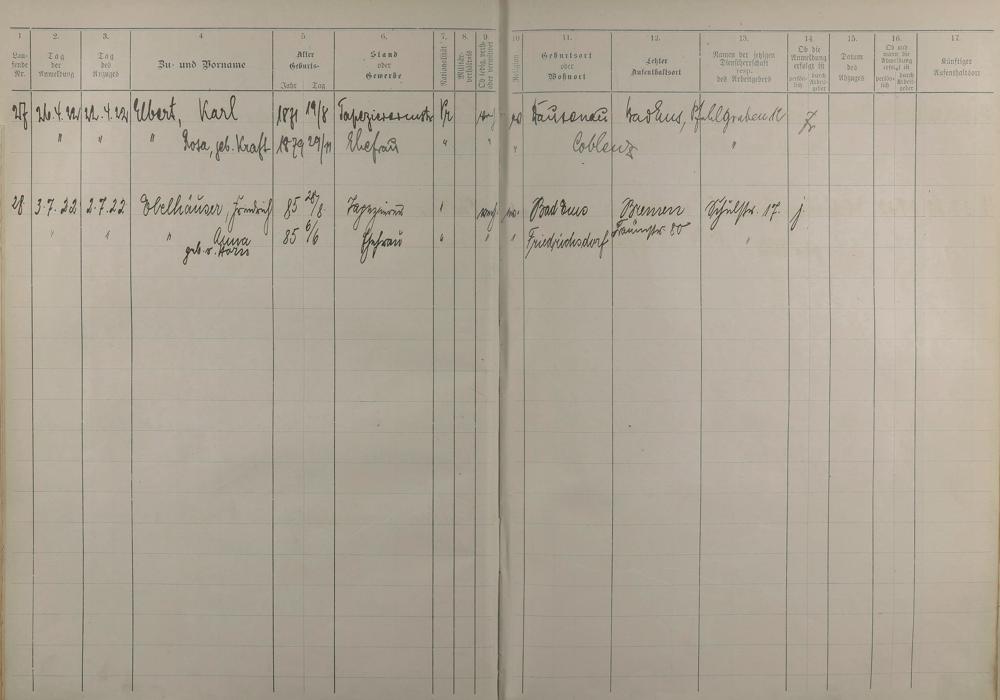 1 2. 3. 4 5 6. 7. 8. 9. 10 11. 12. 13. 14. 15. 16. 17.
Lau-
fende
Nr.
Tag
der
Anmeldung
Tag
des
Anzuges
Zu- und Vorname
Alter
Geburts-
Jahr Tag
Stand
oder
Gewerbe
Nationalität
Militär-
verhältnis
Ob ledig, verh.
oder verwitwet
Religion
Geburtsort
oder
Wohnort
Letzter
Aufenthaltsort
Namen der jetzigen
Dienstherrschaft
resp.
des Arbeitgebers
Ob die
Anmeldung
erfolgt ist
persön-
lich
durch
Arbeit-
geber
Datum
des
Abzuges
Ob und
wann die
Abmeldung
erfolgt ist
persön-
lich
durch
Arbeit-
geber
Künftiger
Aufenthaltsort
27 26.4.22 22.4.22 Elbert, Karl 1871 19/8 Tapezierermstr Pr Bad Ems, Pfahlgraben
" " " Rosa, geb. Kraft 1879 29/11 Ehefrau " " " Coblenz "
28 3.7.22 2.7.22 Ebelhäuser, Friedrich 85 28/8 Tapezierer " Bad Ems Bremen Schulstr. 17. j.
" " " Anna 85 6/6 Ehefrau " " " Friedrichsdorf "
geb. v. Horn